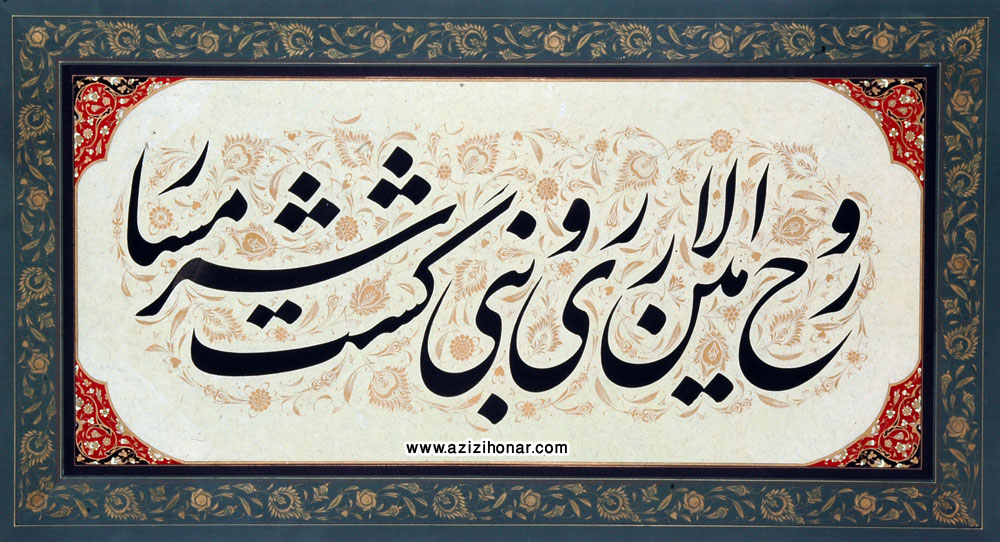 روح الامین ز روی نبی گشت شرمسار
www.azizihonar.com